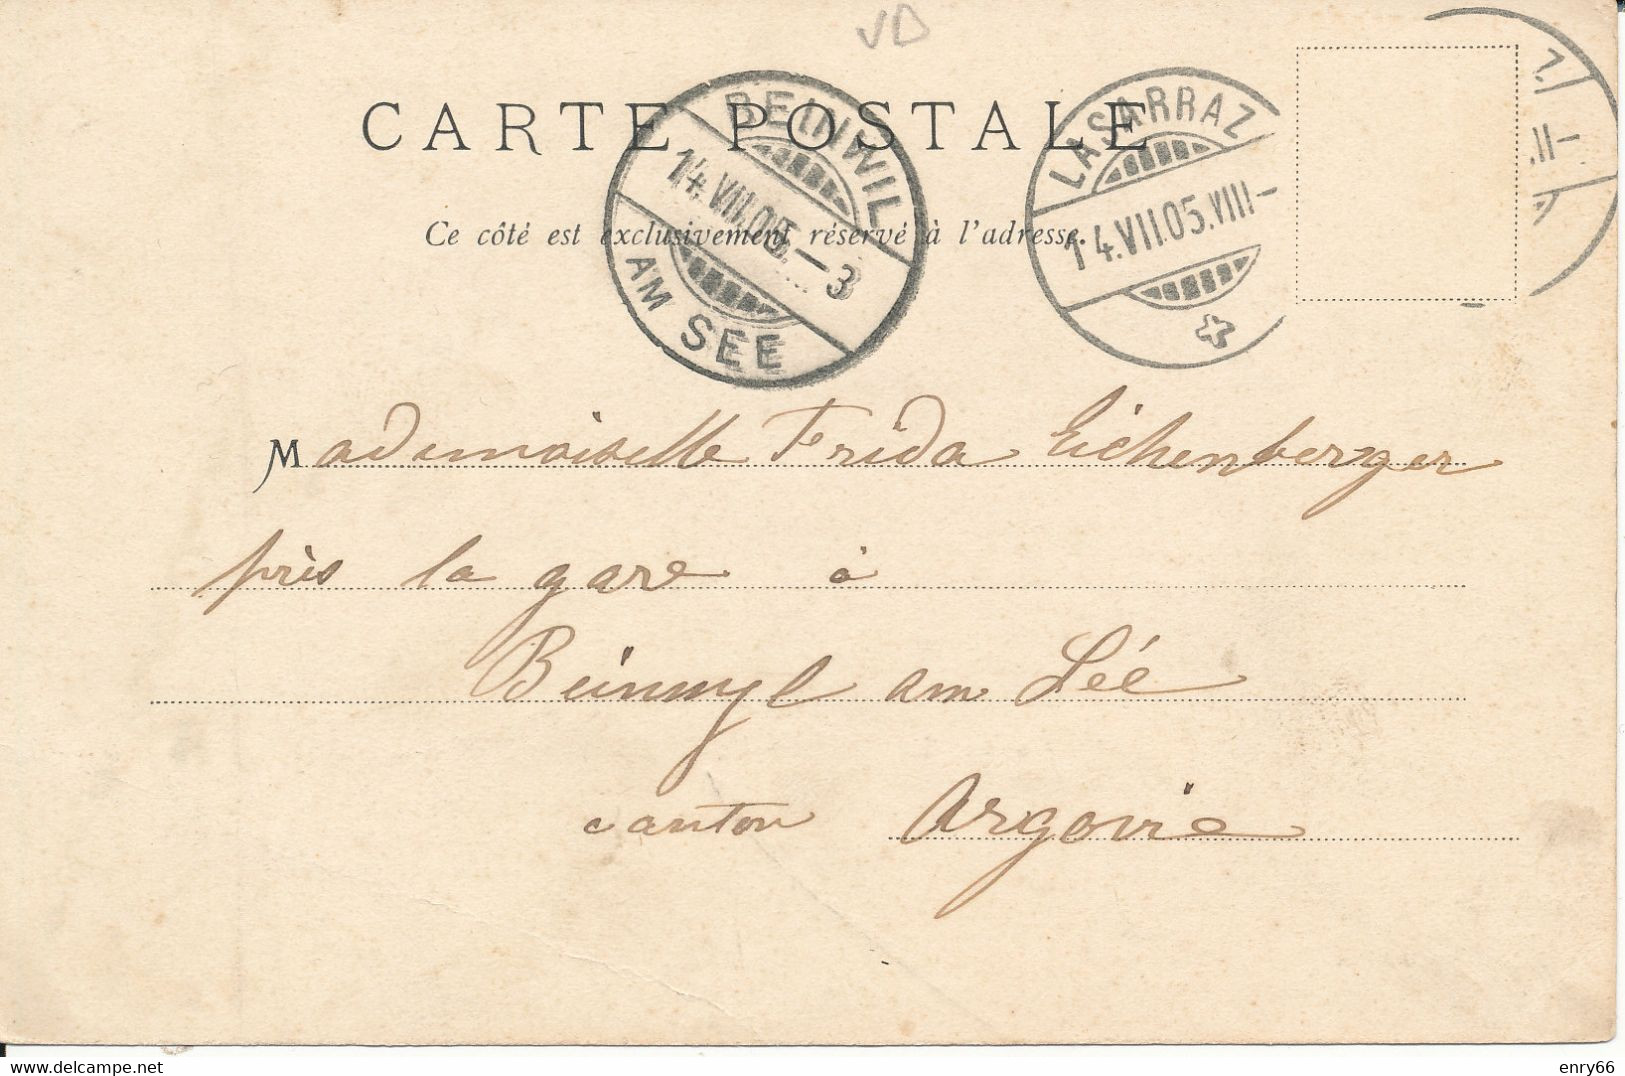 VD
CARTE POSTALE
BEINWIL
14.VII.05.–3
AM SEE
LASARRAZ
14.VII.05.VIII–
Ce côté est exclusivement réservé à l'adresse.
Mademoiselle Frida Eichenberger
près la gare à
Beinwyl am Sée
canton Argovie
enry66